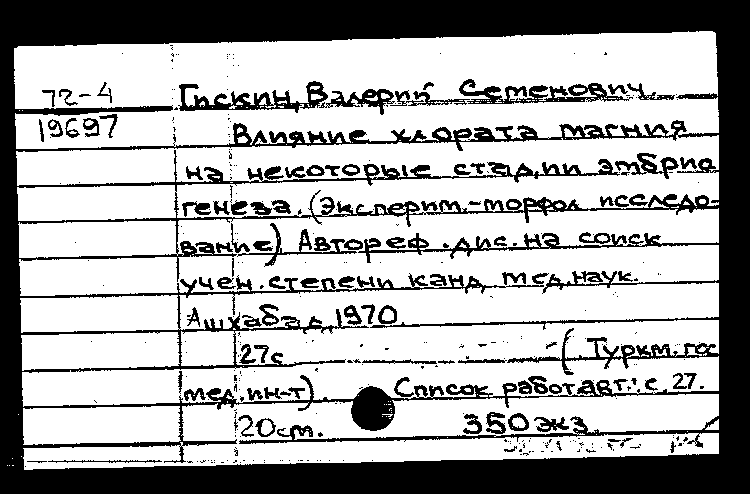 72-4 Гискин, Валерий Семенович.
19697 Влияние хлората магния
на некоторые стадии эмбрио
генеза. (Эксперим.-морфол исследо-
вание) Автореф. дис. на соиск
учен. степени канд мед. наук.
Ашхабад, 1970.
27с (Туркм. гос
мед. ин-т). Список работ авт.: с. 27.
20 cm. 350 экз.